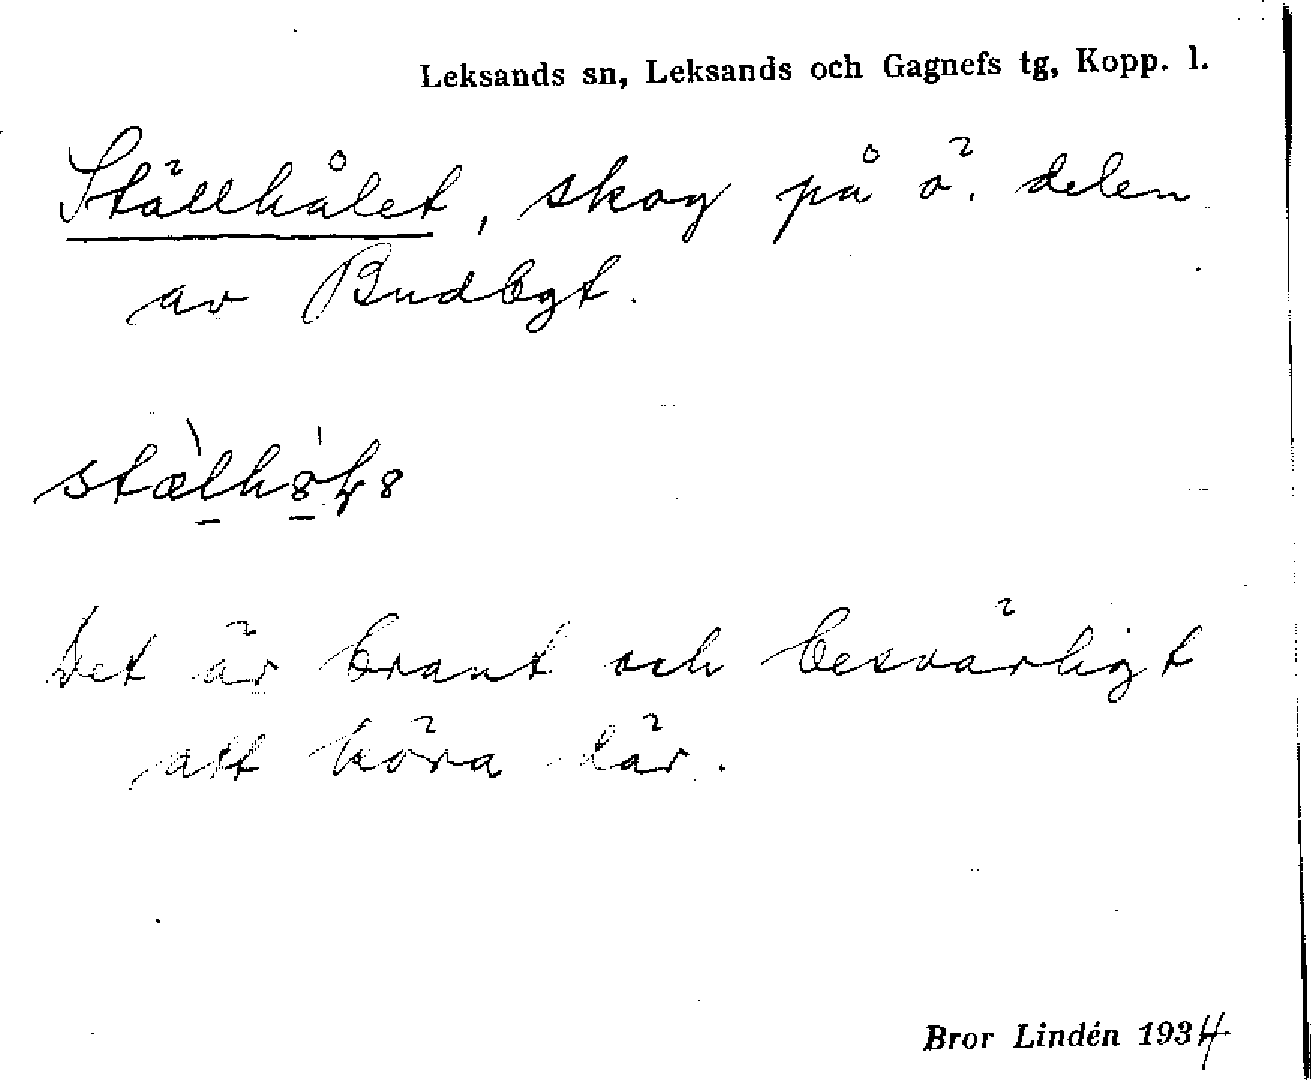 Leksands sn, Leksands och Gagnefs tg, Kopp. l.
Ställhålet, skog på ö. delen
av Budbgt.
Det är brant och besvärligt
att köra där.
Bror Lindén 1934